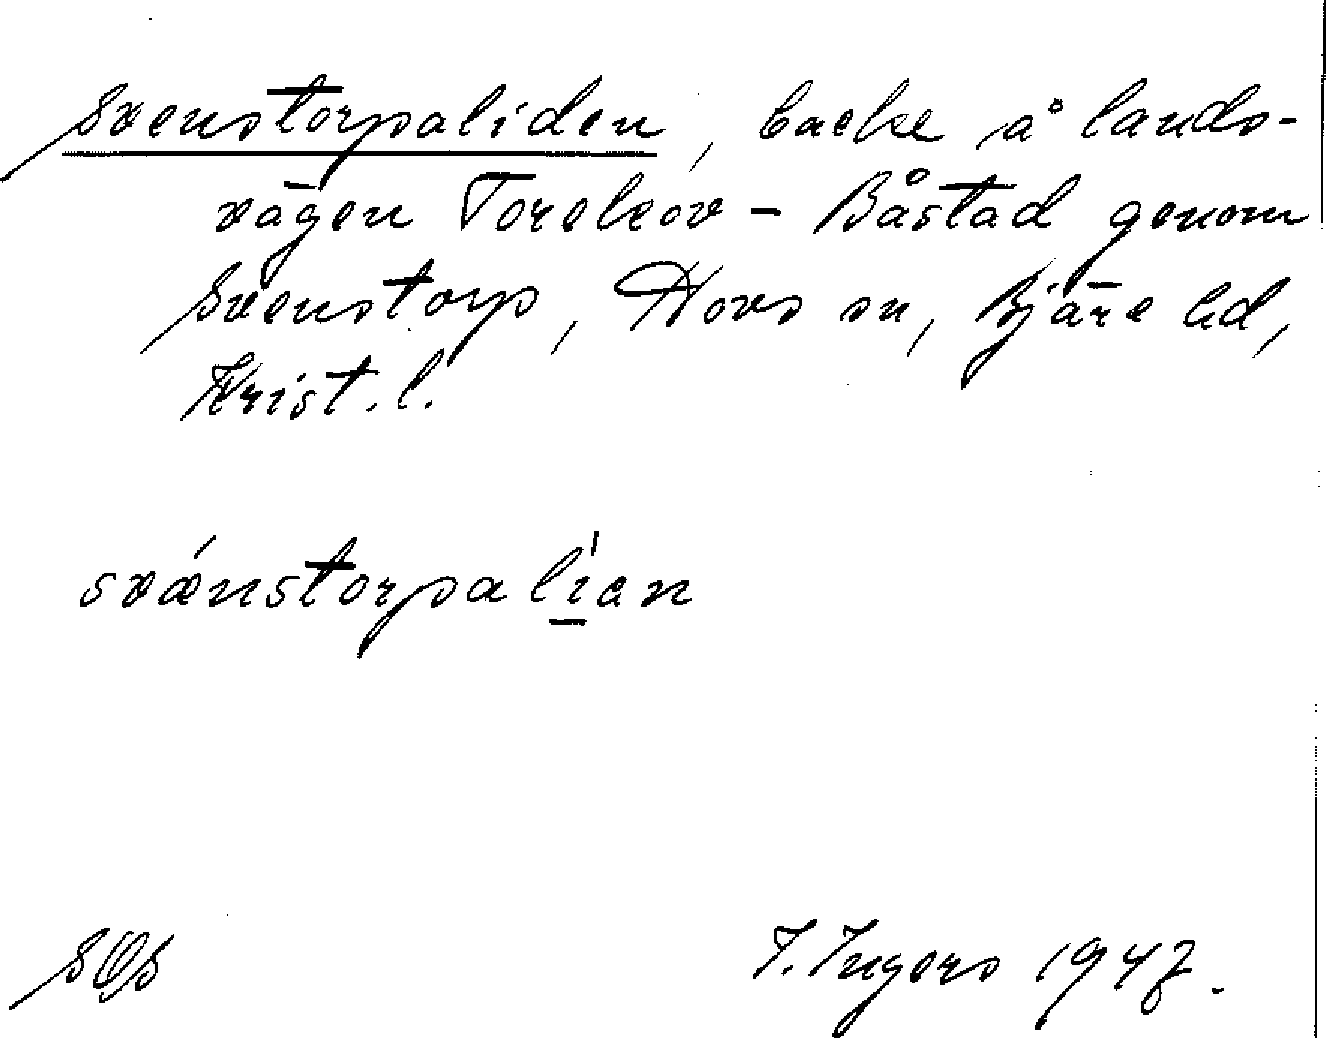 Svenstorpaliden, backe å lands-
vägen Torekov - Båstad genom
Svenstorp, Hovs sn, Bjäre hd,
Krist. l.
svǽnstorpalían
SOS
I. Ingers 1947.